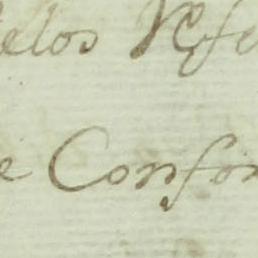 elos Refe
e Confor